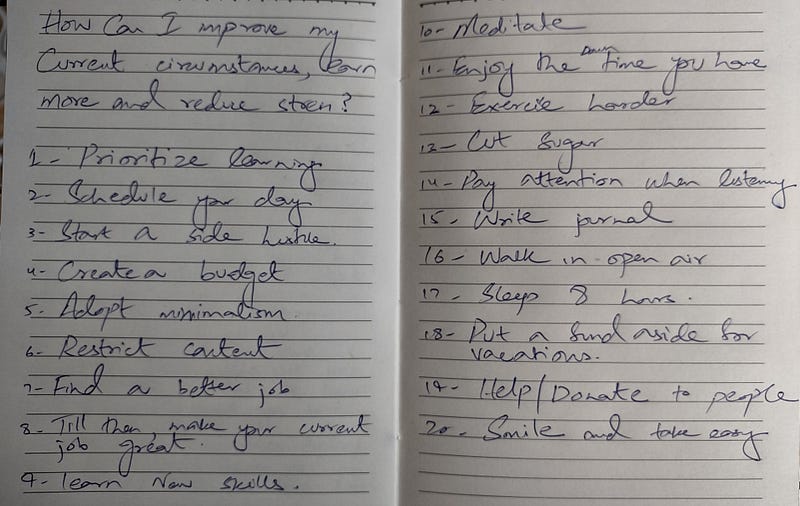 How Can I improve my
Current circumstances, learn
more and reduce stress?
1- Prioritize learning
2- Schedule your day
3- Start a side hustle.
4- Create a budget
5- Adopt minimalism
6- Restrict content
7- Find a better job
8- Till then, make your current
job great.
9- learn New skills.
10- Meditate
11- Enjoy the Down time you have
12- Exercise harder
13- Cut Sugar
14- Pay attention when listening
15- Write journal
16- Walk in open air
17- Sleep 8 hours.
18- Put a fund aside for
vacations.
19- Help/Donate to people
20- Smile and take easy